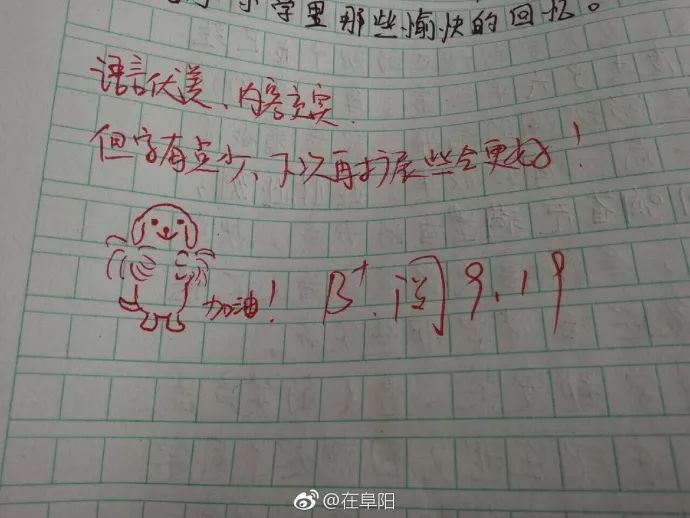 学里那些愉快的回忆。
语言优美、内容充实
但字有点少、下次再扩展些会更好!
加油!
B+. 阅 9.19
@在阜阳